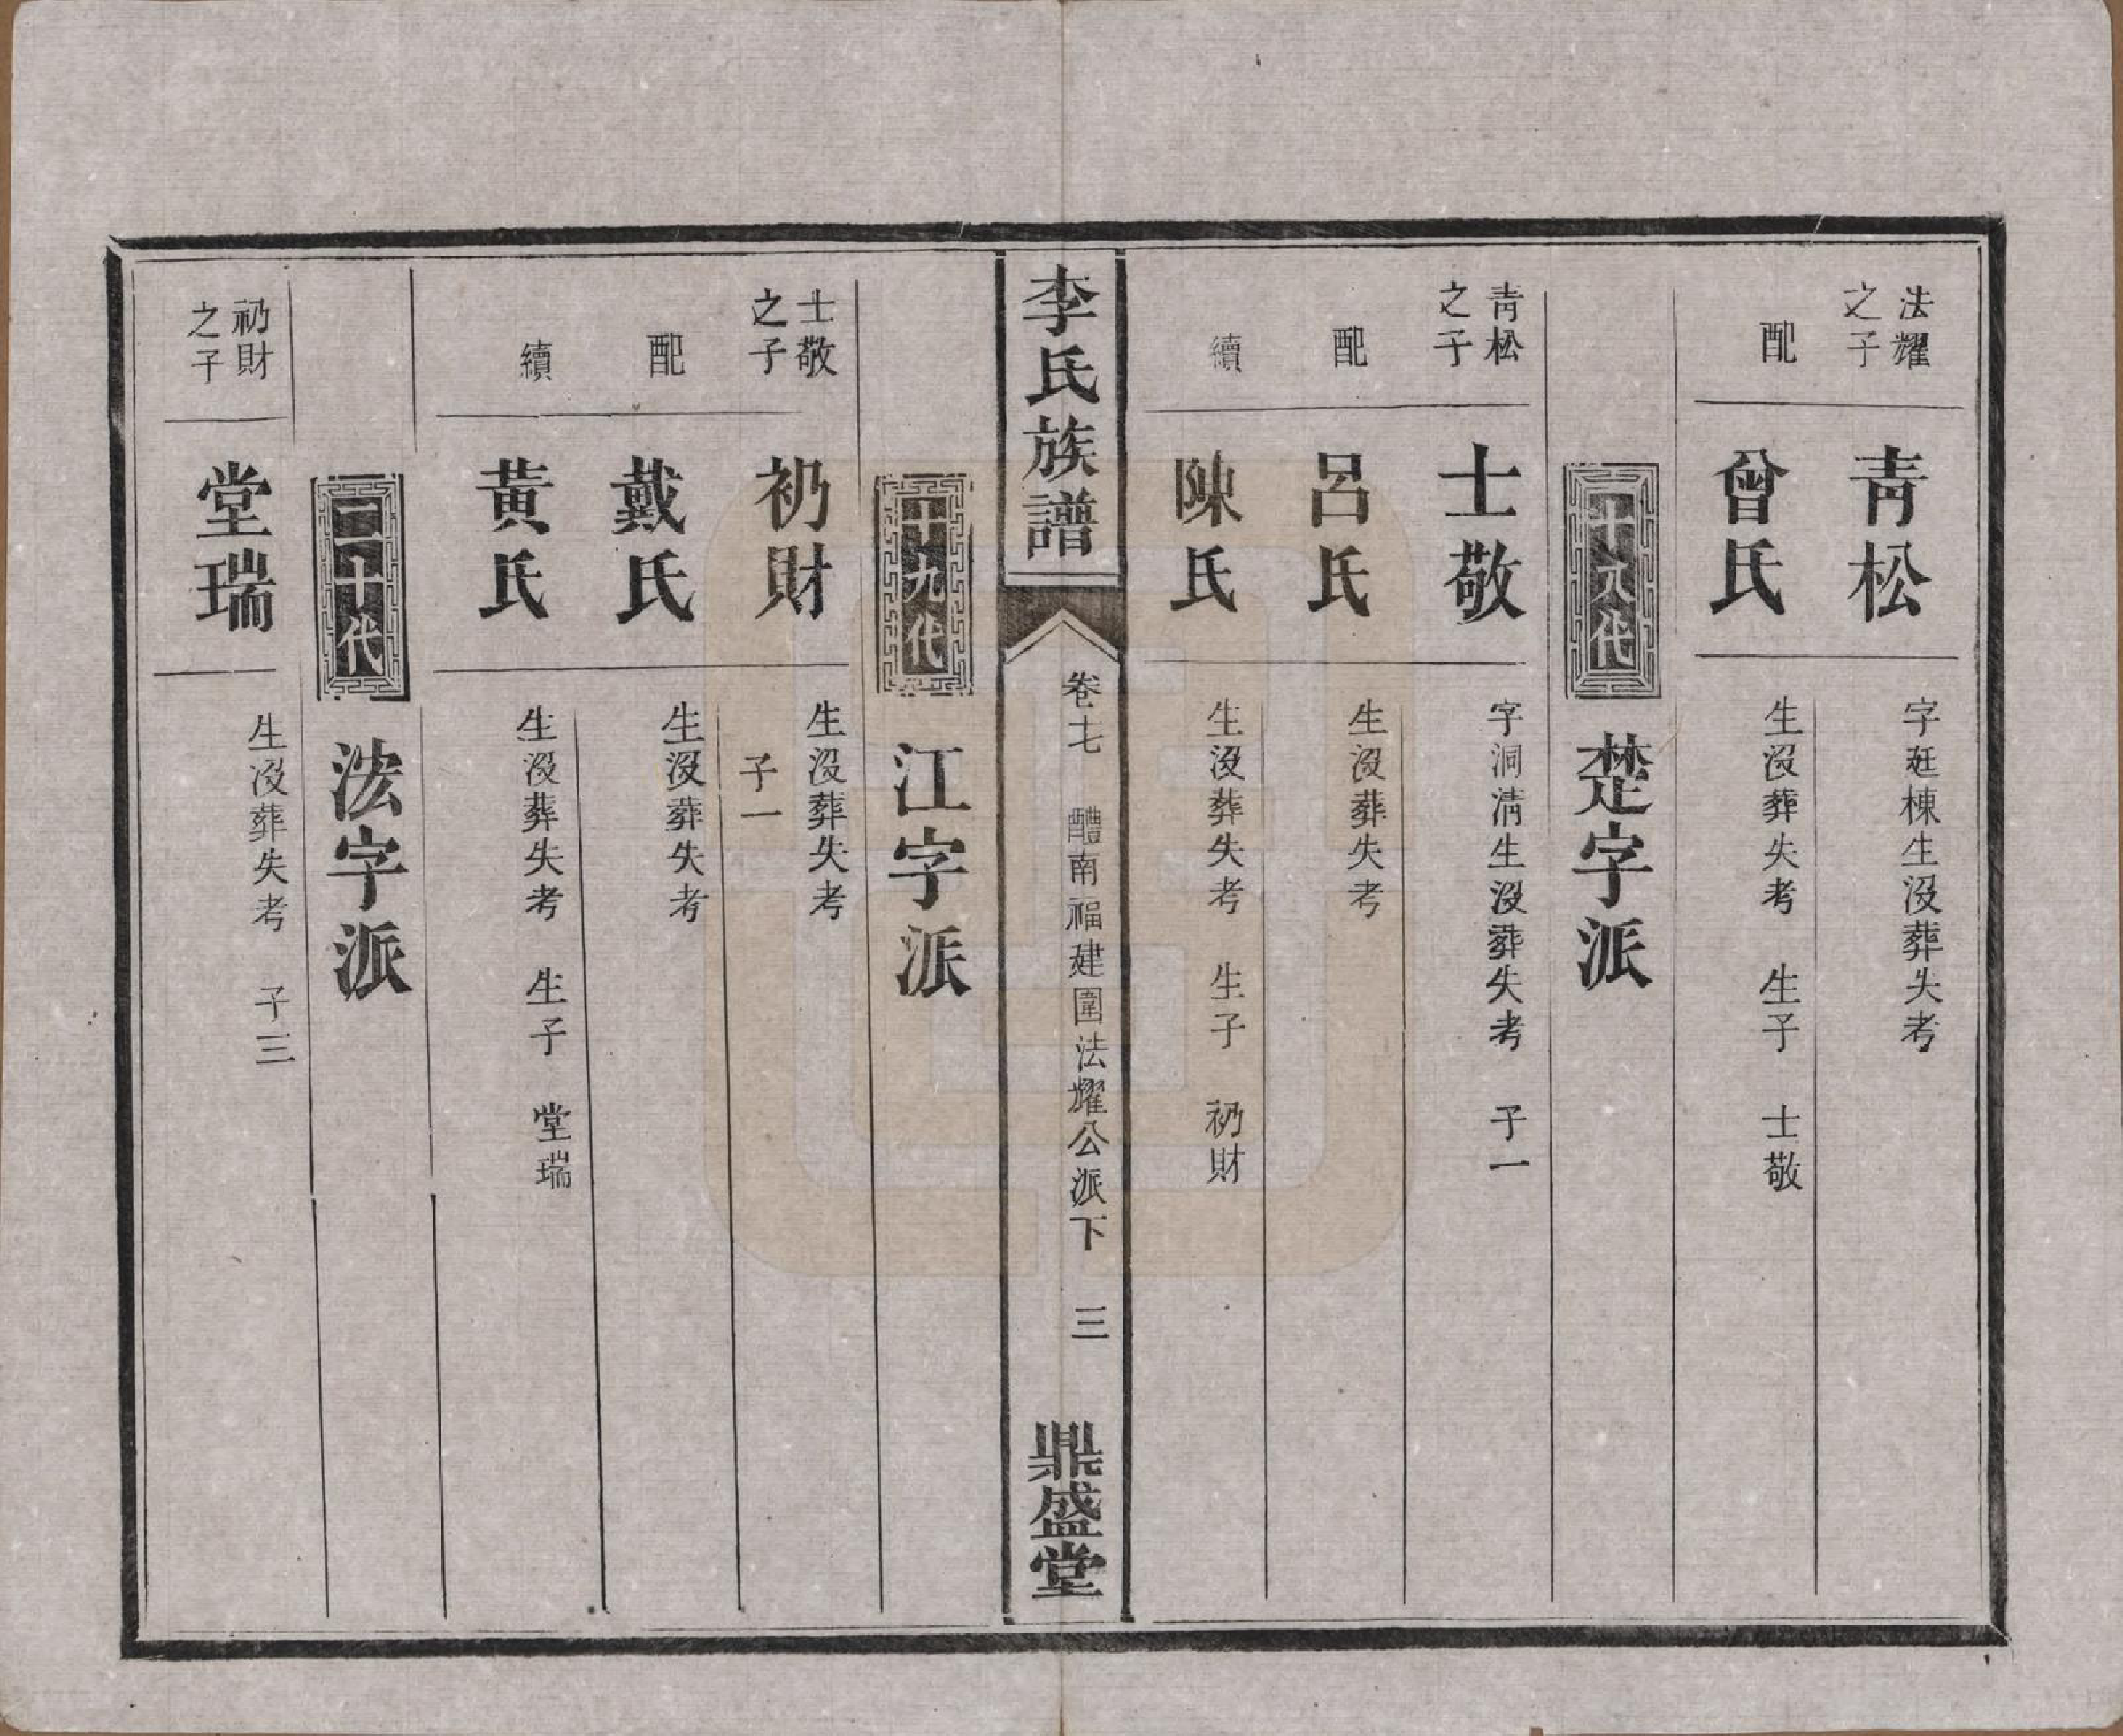 法耀之子
青松
字廷棟生沒葬失考
配
曾氏
生沒葬失考 生子 士敬
十八代
楚字派
青松之子
士敬
字洞清生沒葬失考 子一
配
呂氏
生沒葬失考
續
陳氏
生沒葬失考 生子 礽財
李氏族譜
卷七 醴南福建圍法耀公派下 三
鼎盛堂
十九代
江字派
士敬之子
礽財
生沒葬失考
子一
配
戴氏
生沒葬失考
續
黃氏
生沒葬失考 生子 堂瑞
二十代
法字派
礽財之子
堂瑞
生沒葬失考 子三